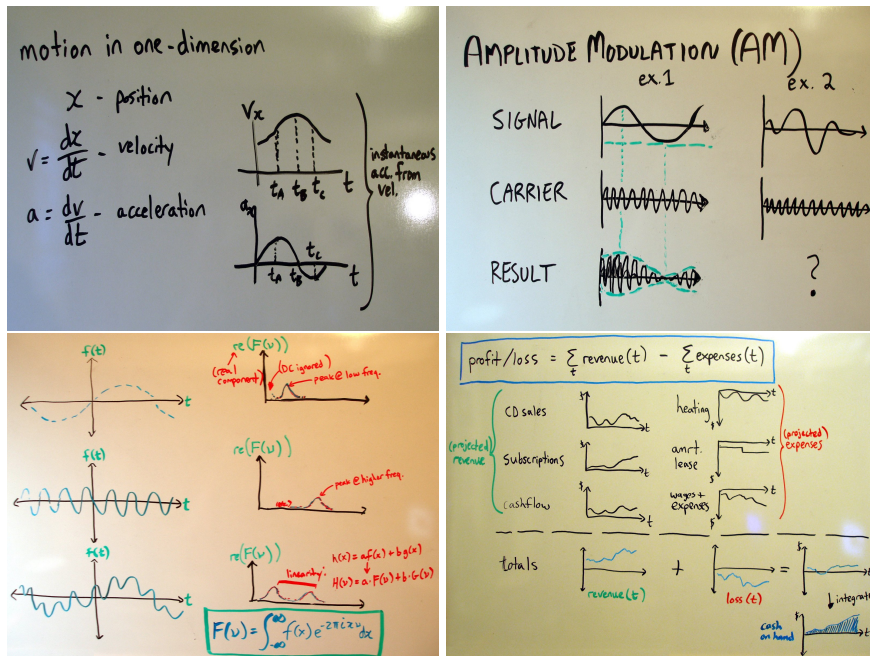 motion in one-dimension
x - position
v = dx/dt - velocity
a = dv/dt - acceleration
Vx
tA tB tC t
ax
tC
tA tB t
instantaneous
acc. from
vel.
AMPLITUDE MODULATION (AM)
ex. 1 ex. 2
SIGNAL
CARRIER
RESULT ?
f(t)
t
re(F(ν))
(real
component)
(DC ignored)
peak @ low freq.
f(t)
t
re(F(ν))
peak @ higher freq.
f(t)
t
re(F(ν))
linearity:
h(x) = af(x) + bg(x)
H(ν) = a·F(ν) + b·G(ν)
F(ν) = ∫_{-∞}^{∞} f(x) e^{-2πixν} dx
profit/loss = Σt revenue(t) - Σt expenses(t)
(projected
revenue
CD sales $ t
Subscriptions $ t
Cashflow $ t
heating $ t
amrt.
lease $ t
wages +
expenses $ t
(projected)
expenses
totals $ t + $ t = $ t
revenue(t) loss(t)
integrate
cash
on hand $ t